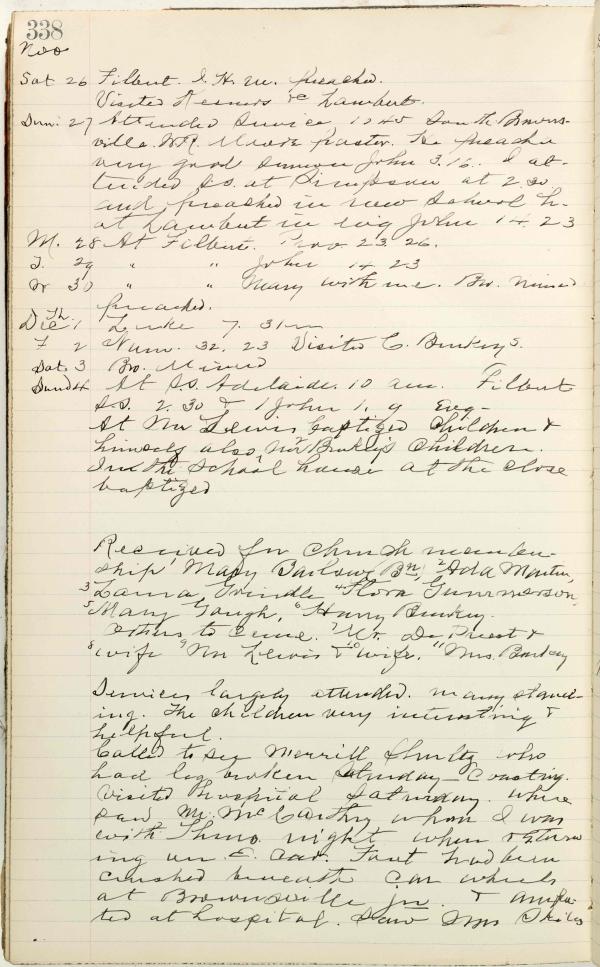 338
Nov
Sat 26 Filbert. I. H. M. preached.
Visited & Lambert.
Sun. 27 Attended Service 10 45 South Browns-
ville. W.R. Moore pastor. He preached
very good sermon John 3.16. I at-
tended S.S. at Simpson at 2.30
and preached in new School H.
at Lambert in evg John 14. 23
M. 28 At Filbert. Prov 23. 26.
T. 29 " " John 14 23
W 30 " " Mary with me. Bro. Minerd
preached.
Th. Dec 1 Luke 7. 31
F 2 Num. 32. 23 Visited C. Burkeys.
Sat. 3 Bro. Minerd
Sund 4 At S.S. Adelaide. 10 am. Filbert
S.S. 2.30 & 1 John 1. 9 Evg-
At Mr Lewis baptized Children &
himself also, Mr Burkey's Children.
In the School house at the close
baptized
Received for Church member-
ship 1 Mary Barlow, 2 Ada Martin,
3 Laura Grindle 4 Flora Gummerson,
5 Mary Gough, 6 Harry Burkey.
Others to come. 7 Mr. De Priest &
8 wife 9 Mr Lewis & 10 wife, 11 Mrs. Burkey
Services largely attended. many stand-
ing. The children very interesting &
helpful.
Called to see Merrill Shultz who
had leg broken Saturday - Coasting.
Visited Hospital Saturday. where
saw Mr. McCarthy whom I was
with Thurs. night when return
ing on E. car. Foot had been
crushed beneath car wheels
at Brownsville Jn. & amputa-
ted at hospital. Saw Mrs